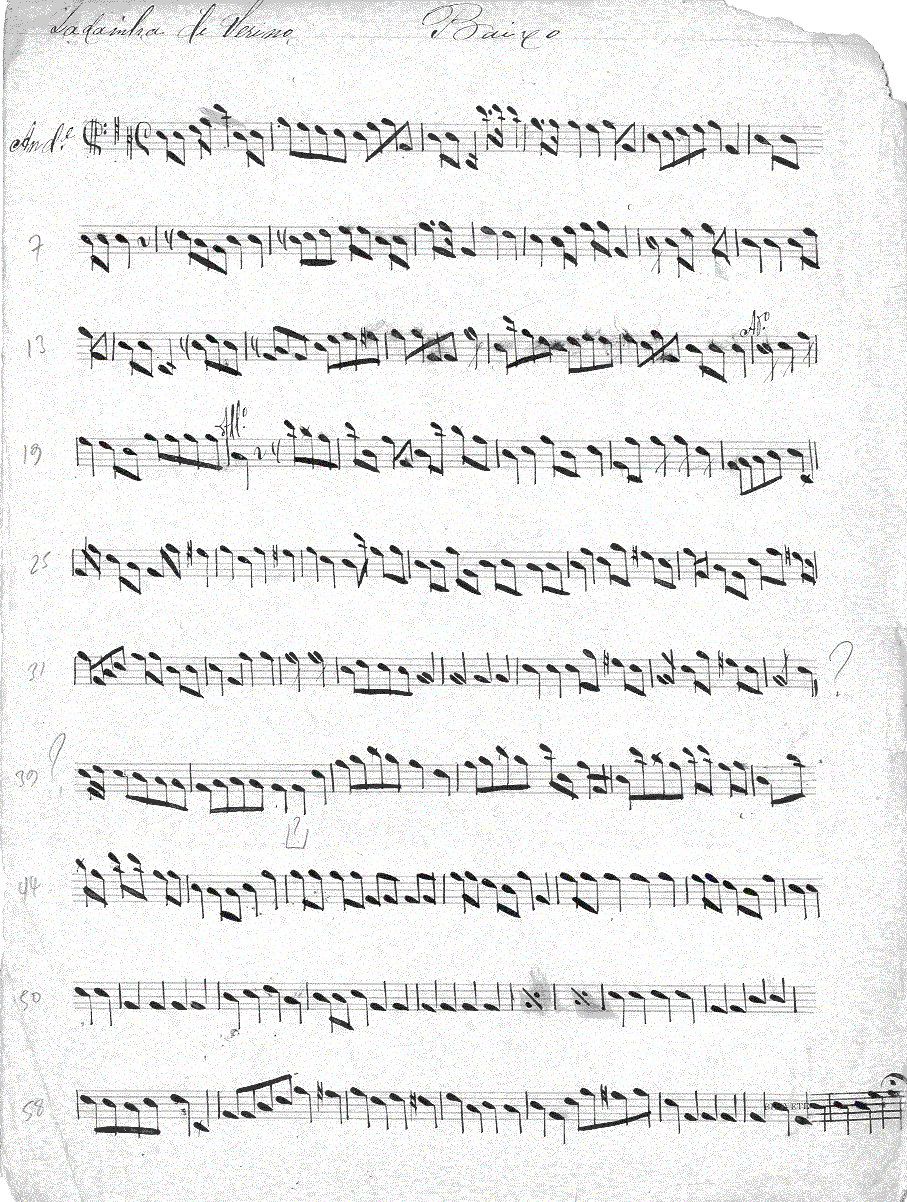 Ladainha de Verino Baixo
And.e
7
13
And.o
19
All.o
25
31
?
39 ?
[?]
44
50
58